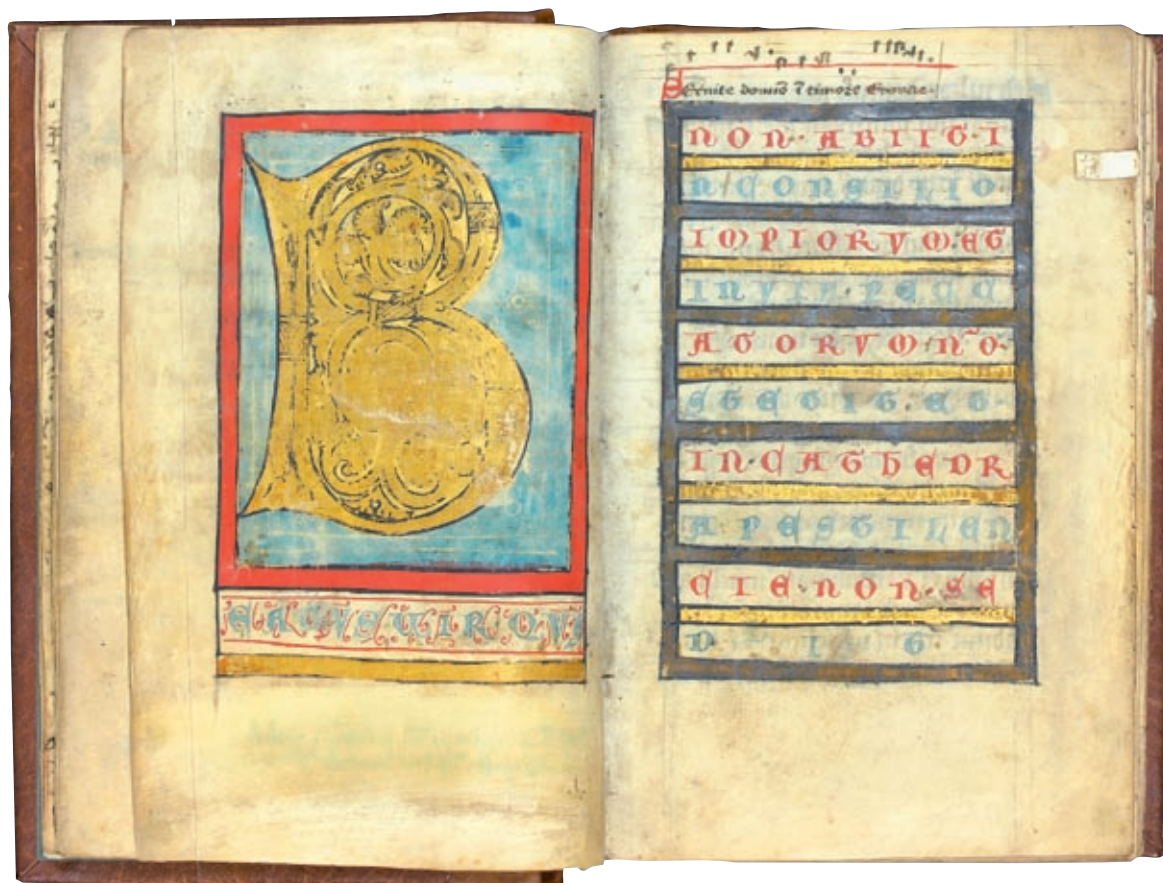 B
EATUS UIR QUI
Seruite domīo ī timore Euouae.
NON·ABIIT·I
N CONSILIO
IMPIORVM·ET
INVIA·PECC
ATORVM N̄O·
STETIT·ET·
IN·CATHEDR
A PESTILEN
CIE·NON·SE
DIT